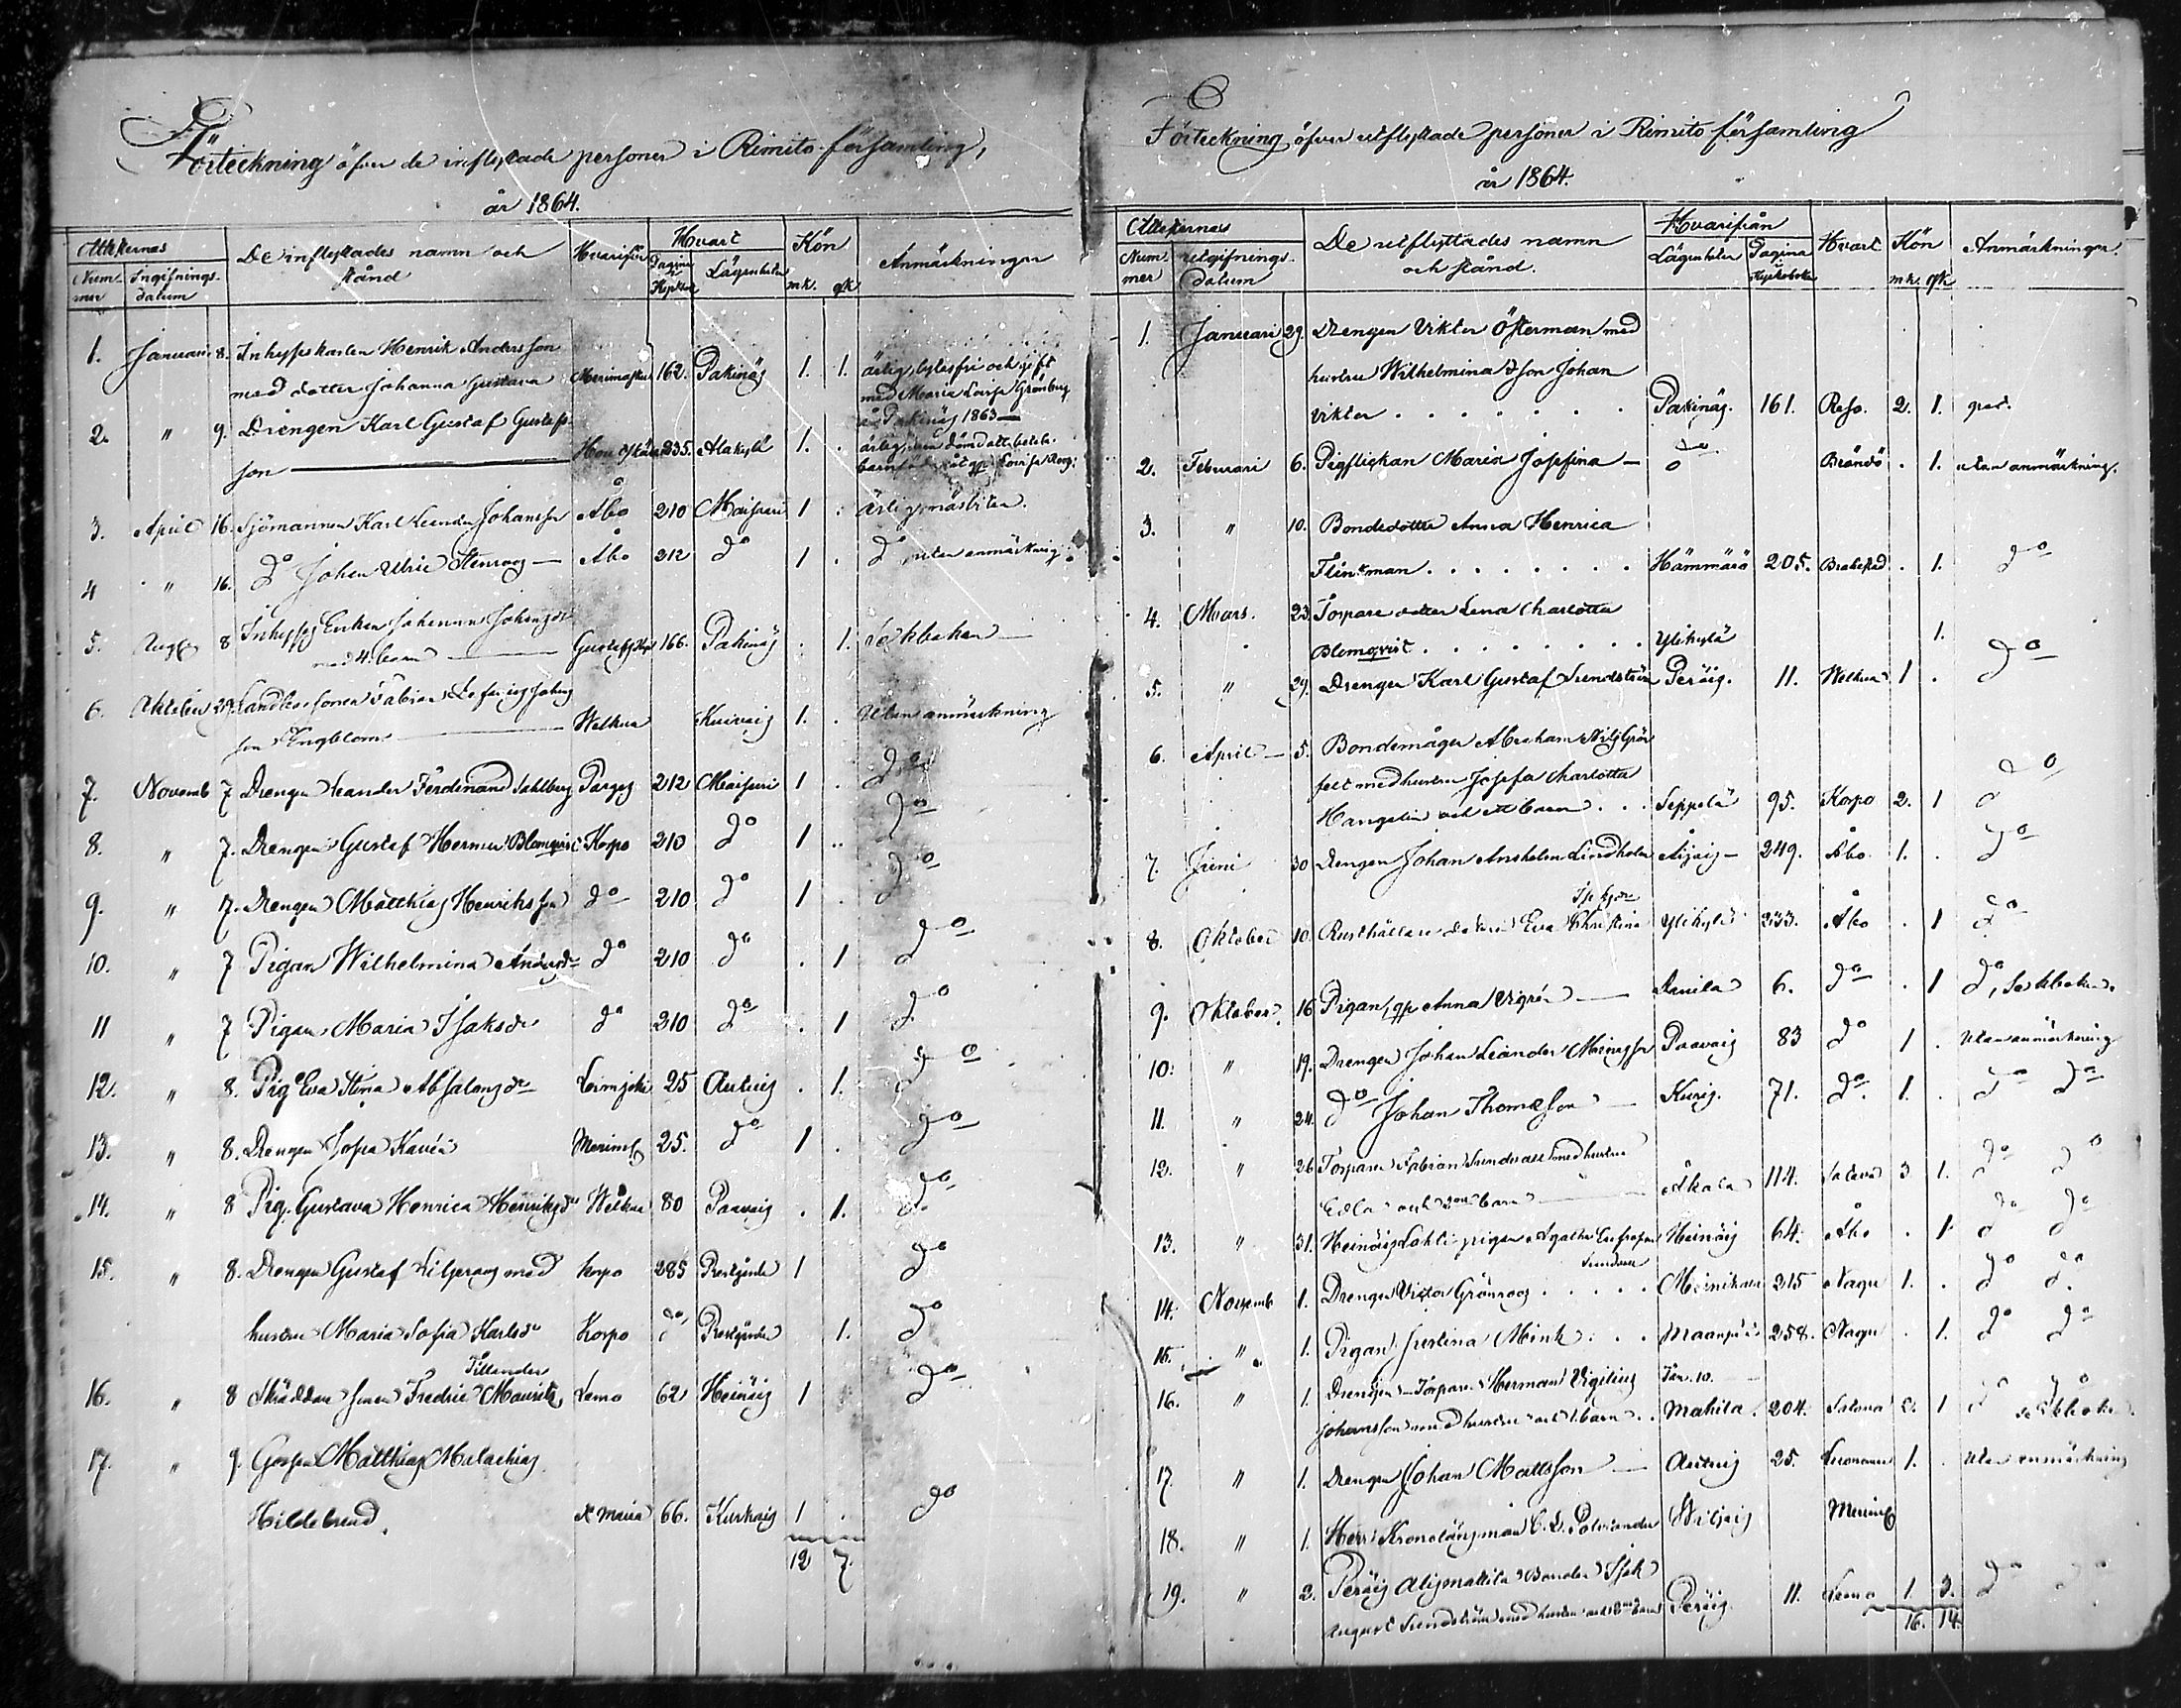 Förteckning öfver de inflyttade personer i Rimito församling,
år 1864.
Attesternas De inflyttades namn och stånd Hvarifrån Hvart Kön Anmärkningar
Nummer Ingifnings datum Pagina Lägenheten mk. qk
1. Januari 8. Inhyses karlen Henrik Andersson
med dotter Johanna Gustava Merimasku 162. Pakinäs 1. 1. ärlig, lytesfri och gift
med Maria Lovisa Grönberg
å Pakinäs 1863
2. " 9. Drengen Karl Gustaf Gustafs
son 335. Alakylä 1. .
3. April 16. Sjömannen Karl Leander Johansson Åbo 210 Maisaari 1 .
4 " 16. do Johan Ulric Stenroos Åbo 212 do 1 . do utan anmärkning
5. Aug 8 Inhyses Enkan Johanna Johansdr
med 4. barn 166. Pakinäs . 1. Se kboken
6. Oktober 29. Fabian
son Engblom Welkua Kuivais 1. . Utan anmärkning
7. Novemb 7 Drengen Leander Ferdinand Sahlberg Pargas 212 Maisaari 1 . do
8. " 7. Drengen Gustaf Herman Blomqvist Korpo 210 do 1 .. do
9. " 7. Drengen Matthias Henriksson do 210 do 1 . do
10. " 7 Pigan Wilhelmina Andersdr do 210 do . 1 do
11 " 7 Pigan Maria Isaksdr do 210 do . 1 do
12. " 8. Pig. Eva Stina Absalonsdr Loimjoki 25 Autuis . 1. do
13. " 8. Drengen Josua Kavén Merimsk 25. do 1 . do
14. " 8 Pig. Gustava Henrica Henriksdr Welkua 80 Paavais . 1. do
15. " 8. Drengen Gustaf Liljeroos med Korpo 285 Prestgården 1 do
hustru Maria Sofia Karlsdr Korpo do Prestgården 1. do
Tillander
16. " 8 Skräddare sonen Fredric Mauritz Lemo 62 Heinäis 1 do
17. " 9. Gossen Matthias Malachias
Hildebrand. St Maria 66. Kurkais 1 . do
12 7.
Förteckning öfver utflyttade personer i Rimito församling
år 1864.
Attesternas De utflyttades namn och stånd. Hvarifrån Hvart Kön Anmärkningar.
Nummer utgifnings datum Lägenheter Pagina Kyrkoboken mk. qk
1. Januari 29. Drengen Viktor Österman med
hustru Wilhelmina & son Johan
Viktor . . . . . . . Pakinäs. 161. Reso. 2. 1.
2. Februari 6. Pigflickan Maria Josefina — do Brändö . 1. utan anmärkning.
3. " 10. Bondedotter Anna Henrica
Flinkman . . . . . . . Hämmärö 205. Brahestad . 1. do
4. Mars. 23. Torpare dotter Lena Charlotta
Blomqvist . . . . . . . Ylikylä 1. do
5. " 29. Drengen Karl Gustaf Sundström Peräis. 11. Welkua 1 . do
6. April 5. Bondemågen Abraham Nils Grön
felt med hustru Josefa Charlotta
Hangelin och ett barn . . Seppälä 95. Korpo 2. 1 do
7. Juni 30 Drengen Johan Anshelm Lindholm Aijais 249. Åbo 1. . do
8. Oktober 10. Rusthållare dottern Eva Christina Ylikylä 233. Åbo . 1 do
9. Oktober 16 Pigan, qp Anna Vigrén 6. do . 1 do, Se kboken.
10. " 19. Drengen Johan Leander Paavais 83 do 1 . Utan anmärkning
11. " 24. do Johan Thomasson Kuris. 71. do. 1. . do do
12. " 26 Torparen Fabian Sundvall med hustru
Edla och 2ne barn 114. 3 1. do do
13. " 31. Heinäis Lahti pigan Agatha Eufrosyne Heinäis 64. Åbo . 1 do do
14. Novemb 1. Drengen Victor Grönroos . . . . . 215 Nagu 1. . do do.
15. " 1. Pigan Justina Mink . . . Maanpää 258. Nagu . 1. do do
16. " 1. Drengen-Torparen Herman Vigilius
Johansson med hustru och 1. barn . . Mahila. 204. 2. 1 do
17. " 1. Drengen Johan Mattsson Autuis 25. 1. . Utan anmärkning
18. " 1. Herr Kronolänsman C. L. Palmander Merimsk
19. " 2. Peräis Alismattila Bonden Isak
August Sundström med hustru och 2ne barn Peräis. 11. Lemo 1. 3. do do
16. 14.